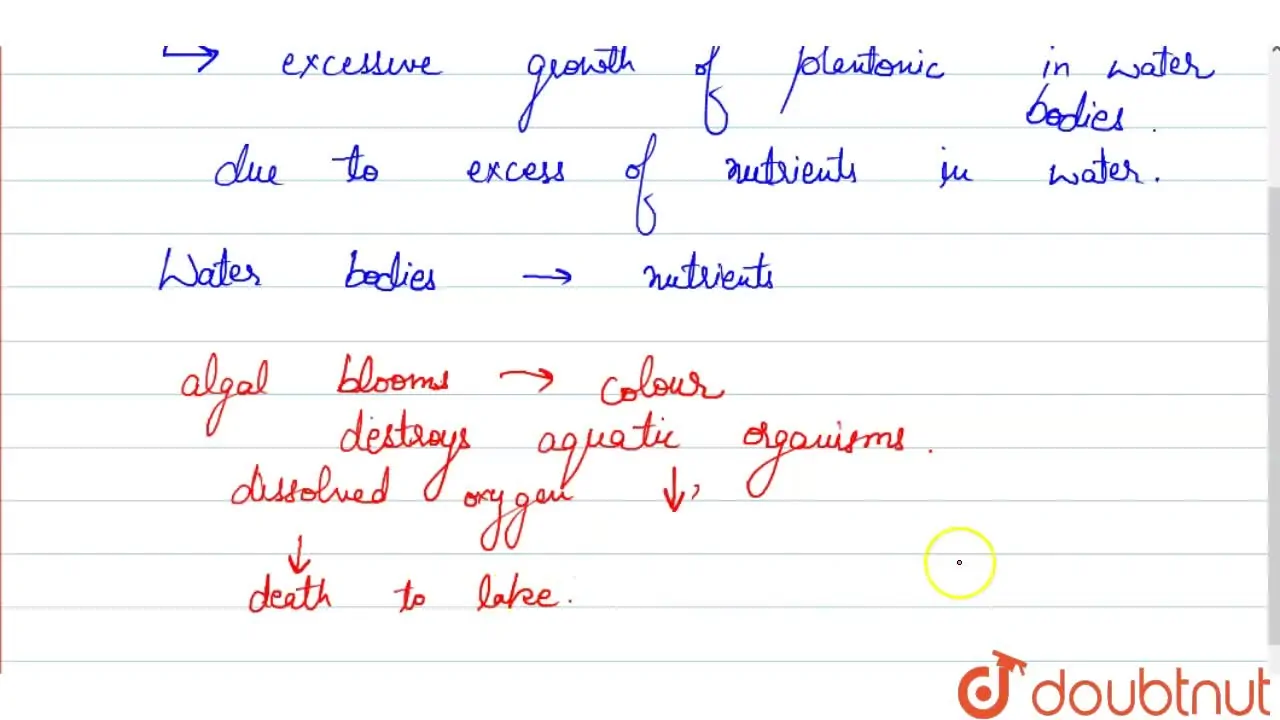 → excessive growth of plentonic in water
bodies.
due to excess of nutrients in water.
Water bodies → nutrients
algal blooms → colour
destroys aquatic organisms.
dissolved oxygen ↓,
↓
death to lake.
doubtnut